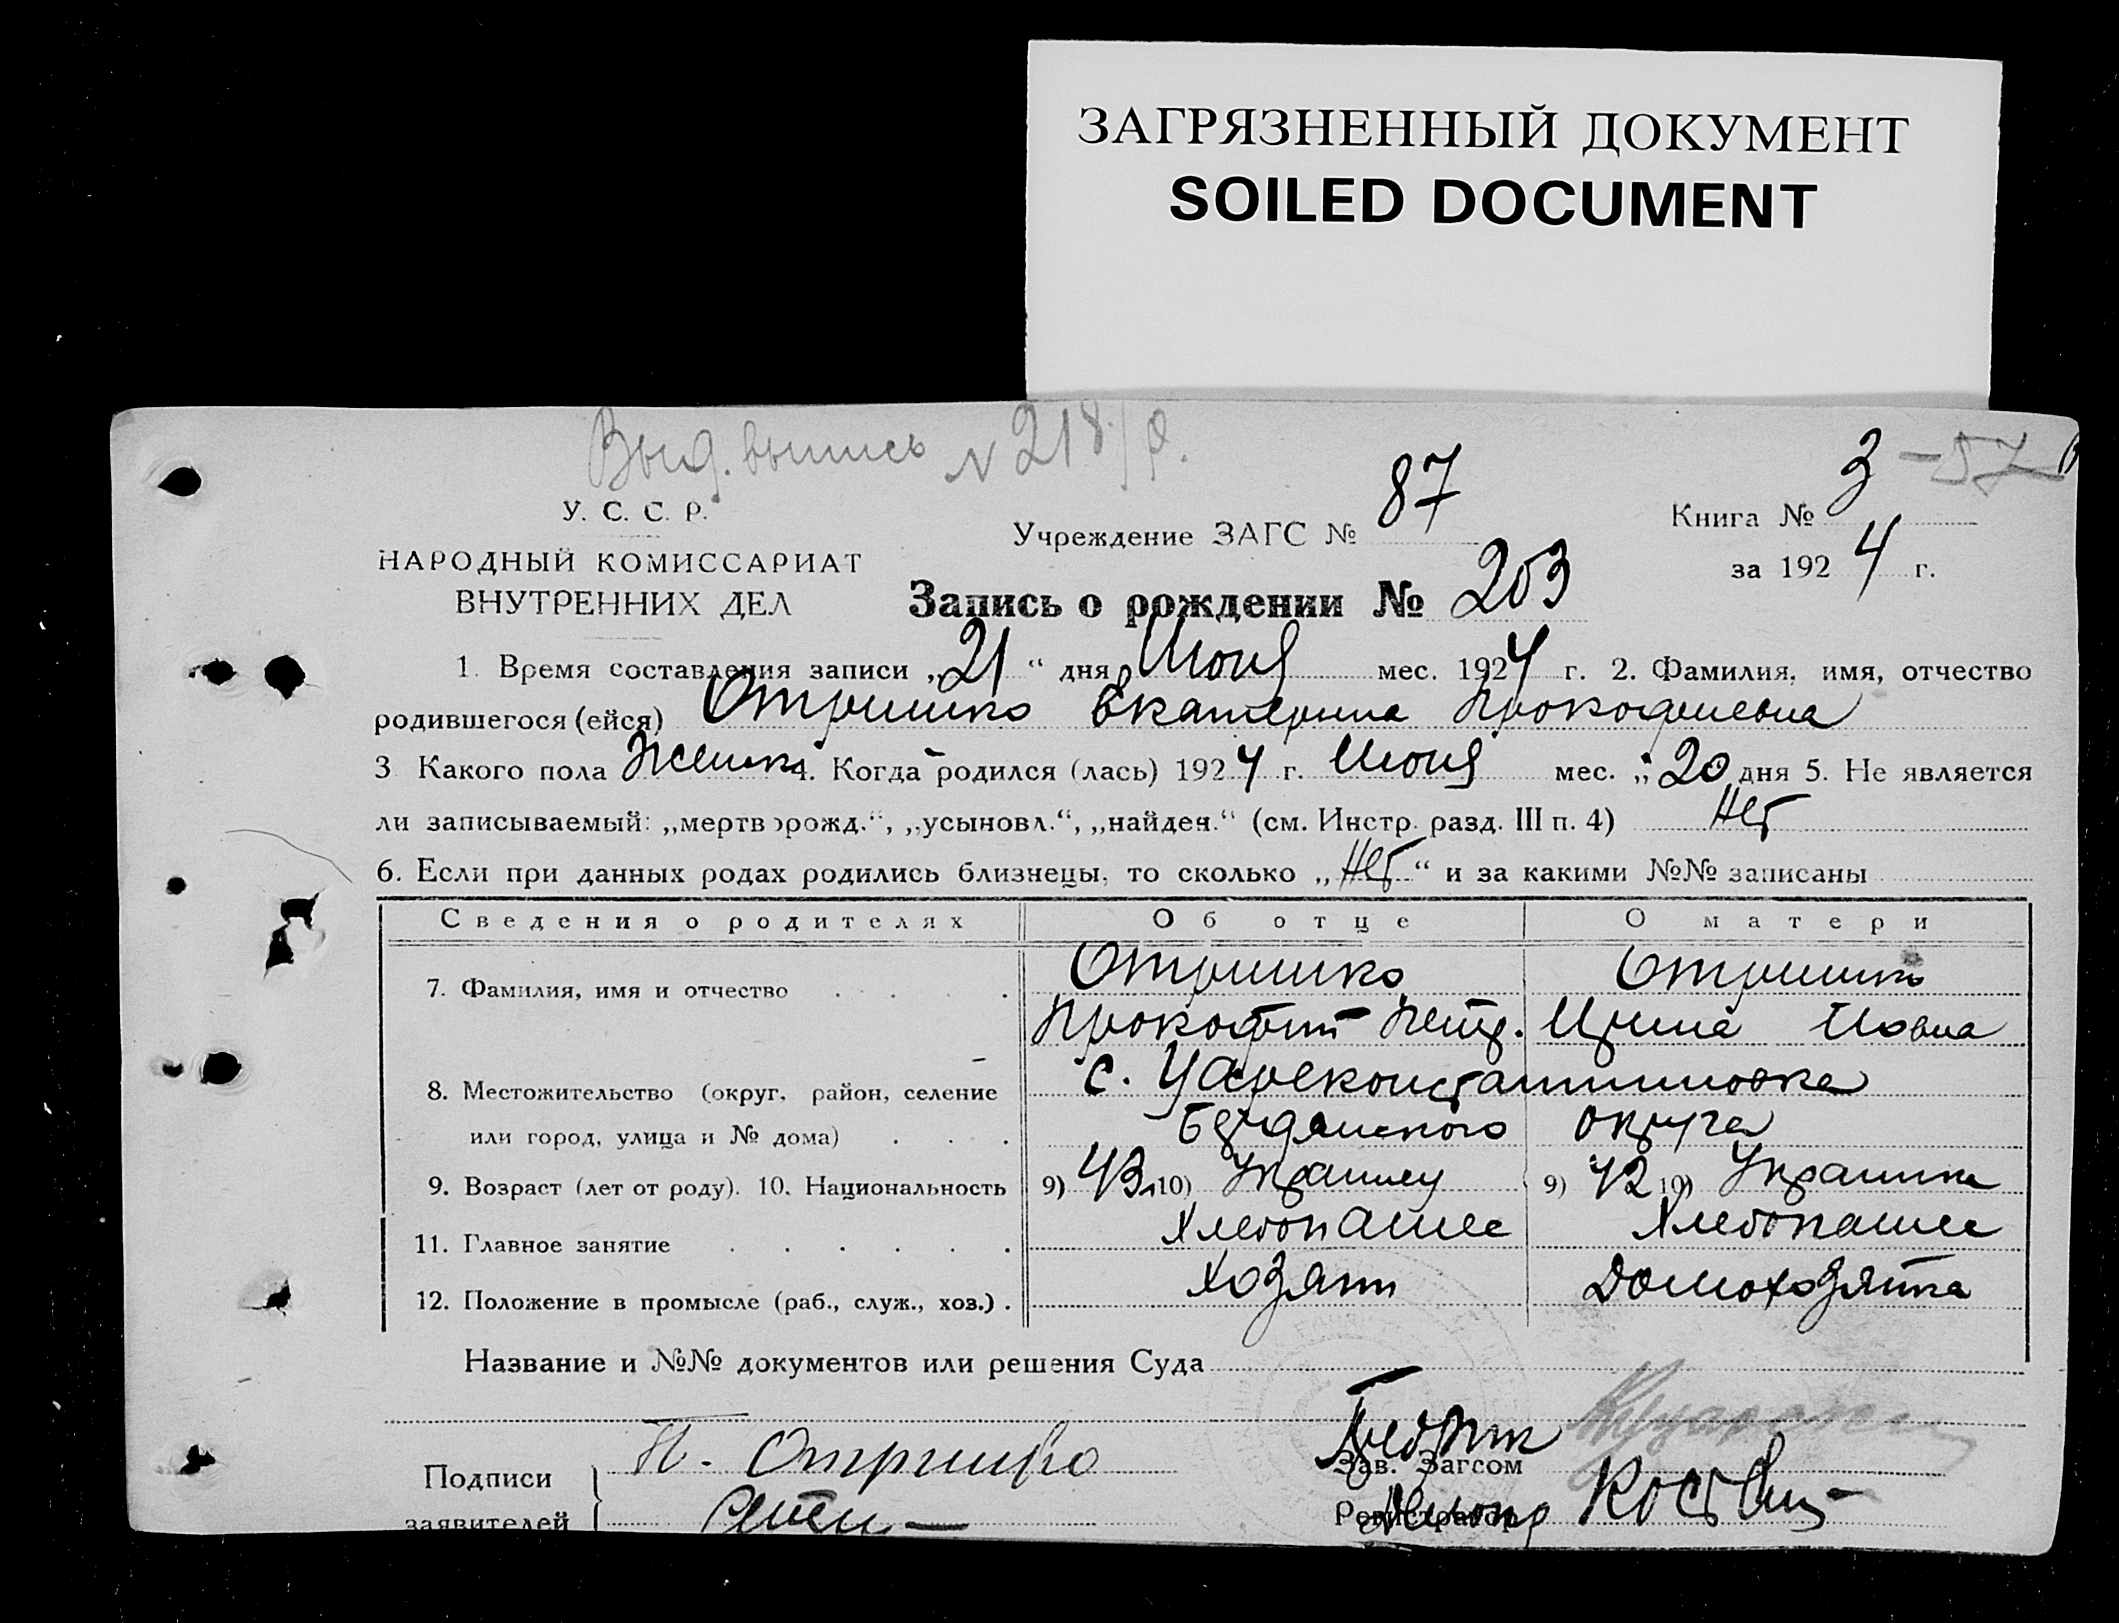 ЗАГРЯЗНЕННЫЙ ДОКУМЕНТ
SOILED DOCUMENT
Выд. выпись N 218/р.
У. С. С. Р.
НАРОДНЫЙ КОМИССАРИАТ
ВНУТРЕННИХ ДЕЛ
Учреждение ЗАГС № 87
Книга № 3 - 57
за 1924 г.
Запись о рождении № 203
1. Время составления записи „21“ дня Июня мес. 1924 г. 2. Фамилия, имя, отчество
родившегося (ейся) Отришко Екатерина Прокофиевна
3 Какого пола Женск 4. Когда родился (лась) 1924 г. Июня мес. „20 дня 5. Не является
ли записываемый: „мертворожд.“, „усыновл.“, „найден.“ (см. Инстр. разд. III п. 4) Нет
6. Если при данных родах родились близнецы, то сколько „Нет“ и за какими №№ записаны
Сведения о родителях Об отце О матери
7. Фамилия, имя и отчество Отришко Отришко
Прокофий Петр. Ирина Иовна
8. Местожительство (округ, район, селение с. Цареконстантиновка
или город, улица и № дома) Бердянского округа
9. Возраст (лет от роду). 10. Национальность 9) 43 10) Украинец 9) 42 10) Украинка
11. Главное занятие Хлебопашес Хлебопашес
12. Положение в промысле (раб., служ., хоз.) Хозяин Домохозяйка
Название и №№ документов или решения Суда
Подписи П. Отришко
заявителей
Зав. Загсом
Регистратор